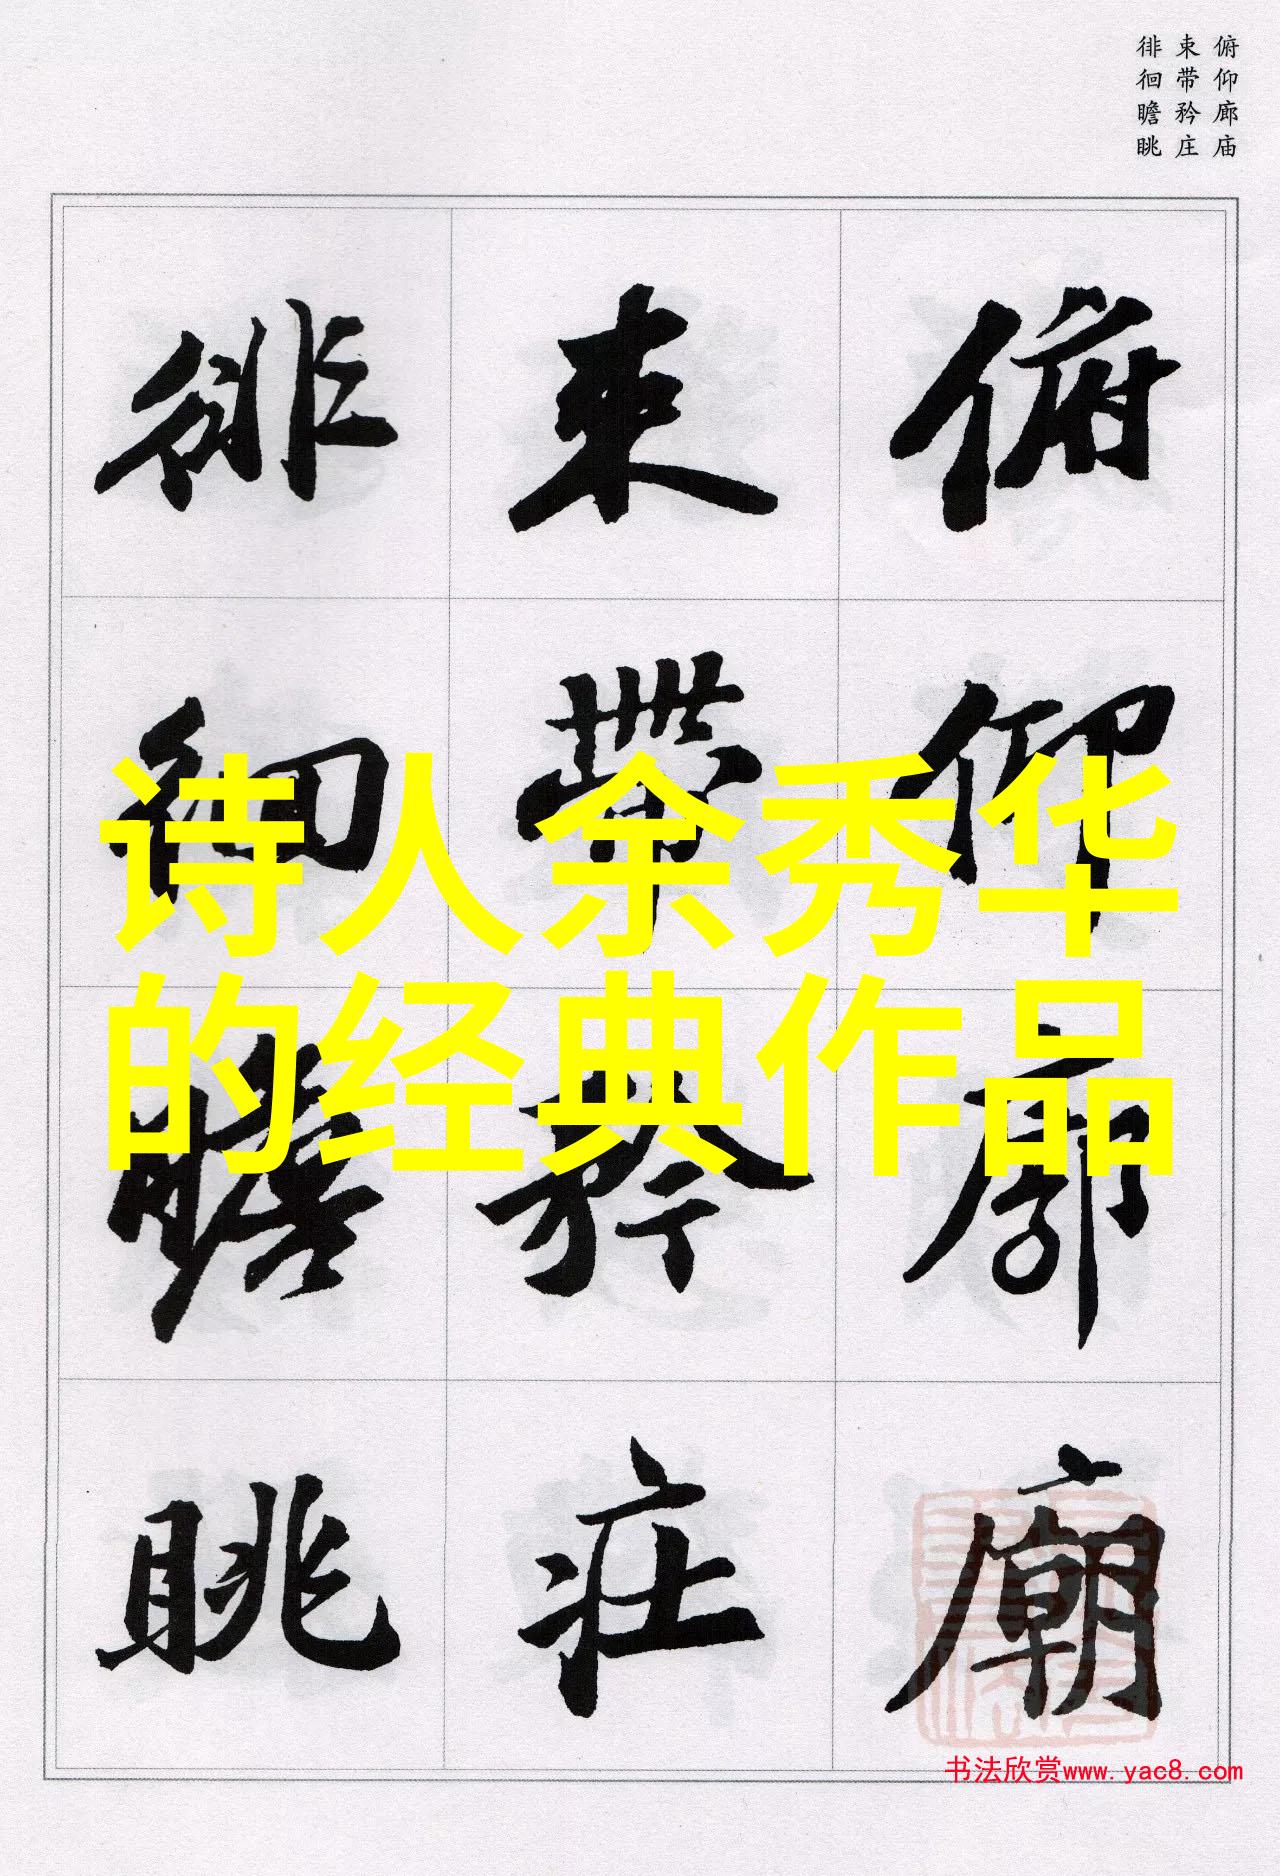 俯仰廊庙
束带矜庄
徘徊瞻眺
俯仰廊廟
束帶矜莊
徘徊瞻眺
诗人余秀华
的经典作品
书法欣赏www.yac8.com